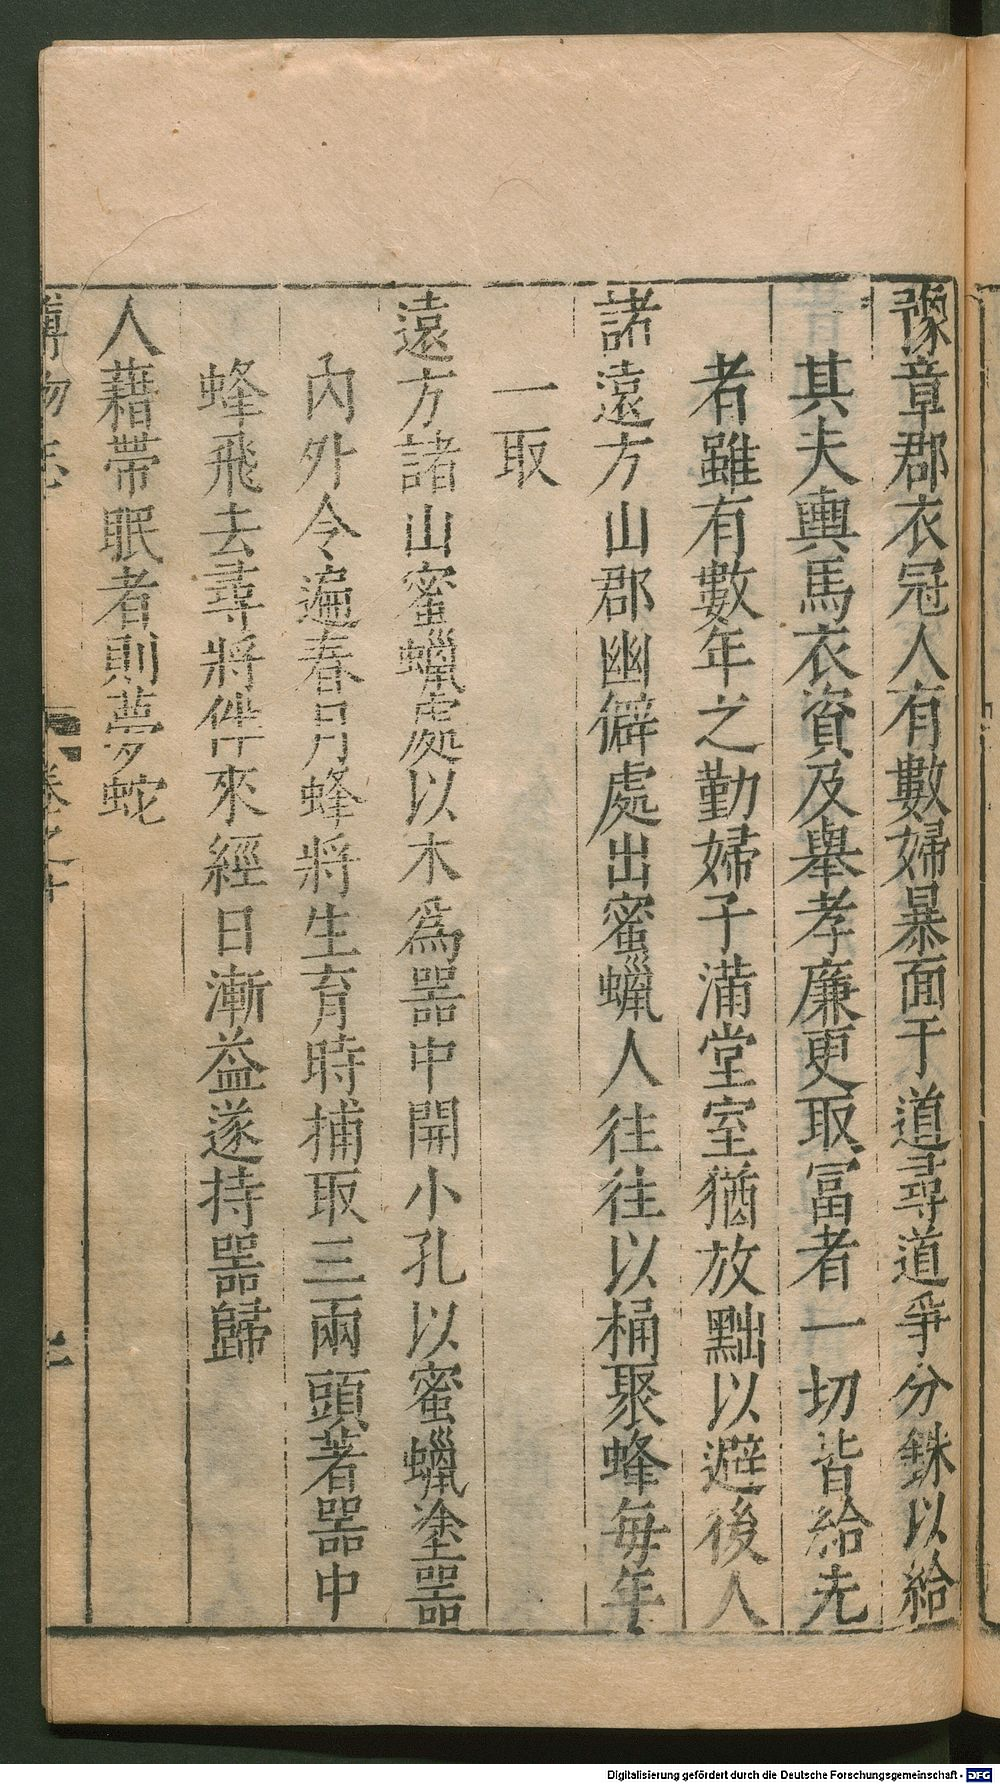 豫章郡衣冠人有數婦暴面于道尋道爭分銖以給
其夫輿馬衣資及舉孝廉更取富者一切皆給先
者雖有數年之勤婦子滿堂室猶放黜以避後人
諸遠方山郡幽僻處出蜜蠟人往往以桶聚蜂每年
一取
遠方諸山蜜蠟處以木爲器中開小孔以蜜蠟塗器
內外令遍春月蜂將生育時捕取三兩頭著器中
蜂飛去尋將伴來經日漸益遂持器歸
人藉帶眠者則夢蛇
博物志 卷之十 二
Digitalisierung gefördert durch die Deutsche Forschungsgemeinschaft - DFG